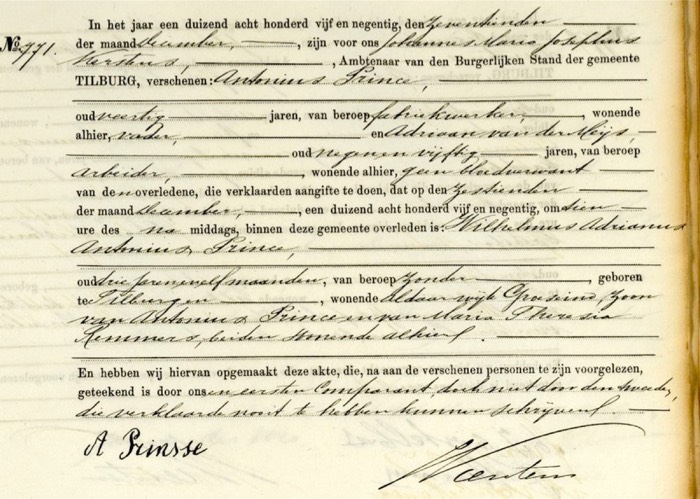 In het jaar een duizend acht honderd vijf en negentig, den Zeventienden
No. 771. der maand December, , zijn voor ons Johannes Maria Josephus
, Ambtenaar van den Burgerlijken Stand der gemeente
TILBURG, verschenen: Antonius Prince,
oud veertig jaren, van beroep fabriekwerker, , wonende
alhier, vader, en Adriaan van der Meijs,
oud negen en vijftig jaren, van beroep
arbeider, , wonende alhier, geen bloedverwant
van den overledene, die verklaarden aangifte te doen, dat op den Zestienden
der maand December, , een duizend acht honderd vijf en negentig, om tien
ure des na middags, binnen deze gemeente overleden is: Wilhelmus Adrianus
Antonius Prince,
oud drie jaren en elf maanden, van beroep zonder , geboren
te Tilburg en , wonende aldaar wijk , Zoon
van Antonius Prince en van Maria Theresia
Kemmers, beiden wonende alhier.
En hebben wij hiervan opgemaakt deze akte, die, na aan de verschenen personen te zijn voorgelezen,
geteekend is door ons en eersten Comparant, doch niet door den tweeden,
die verklaarde nooit te hebben kunnen schrijven.
A Prinsse